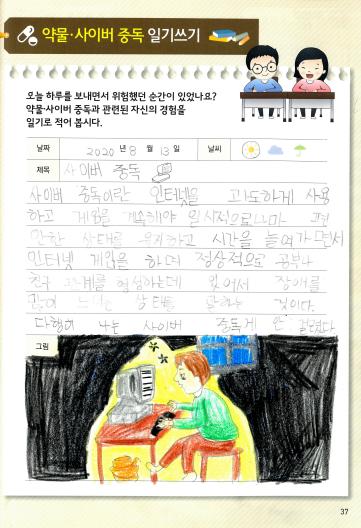 약물·사이버 중독 일기쓰기
오늘 하루를 보내면서 위험했던 순간이 있었나요?
약물·사이버 중독과 관련된 자신의 경험을
일기로 적어 봅시다.
날짜 2020 년 8 월 13 일 날씨
제목 사이버 중독
사이버 중독이란 인터넷을 과도하게 사용
하고 게임을 계속해야 일시적으로나마 편
안한 상태를 유지하고 시간을 늘여가면서
인터넷 게임을 하며 정상적으로 공부나
친구 관계를 형성하는데 있어서 장애를
많이 느끼는 상태를 말하는 것이다.
다행이 나는 사이버 중독에 안 걸렸다.
그림
37